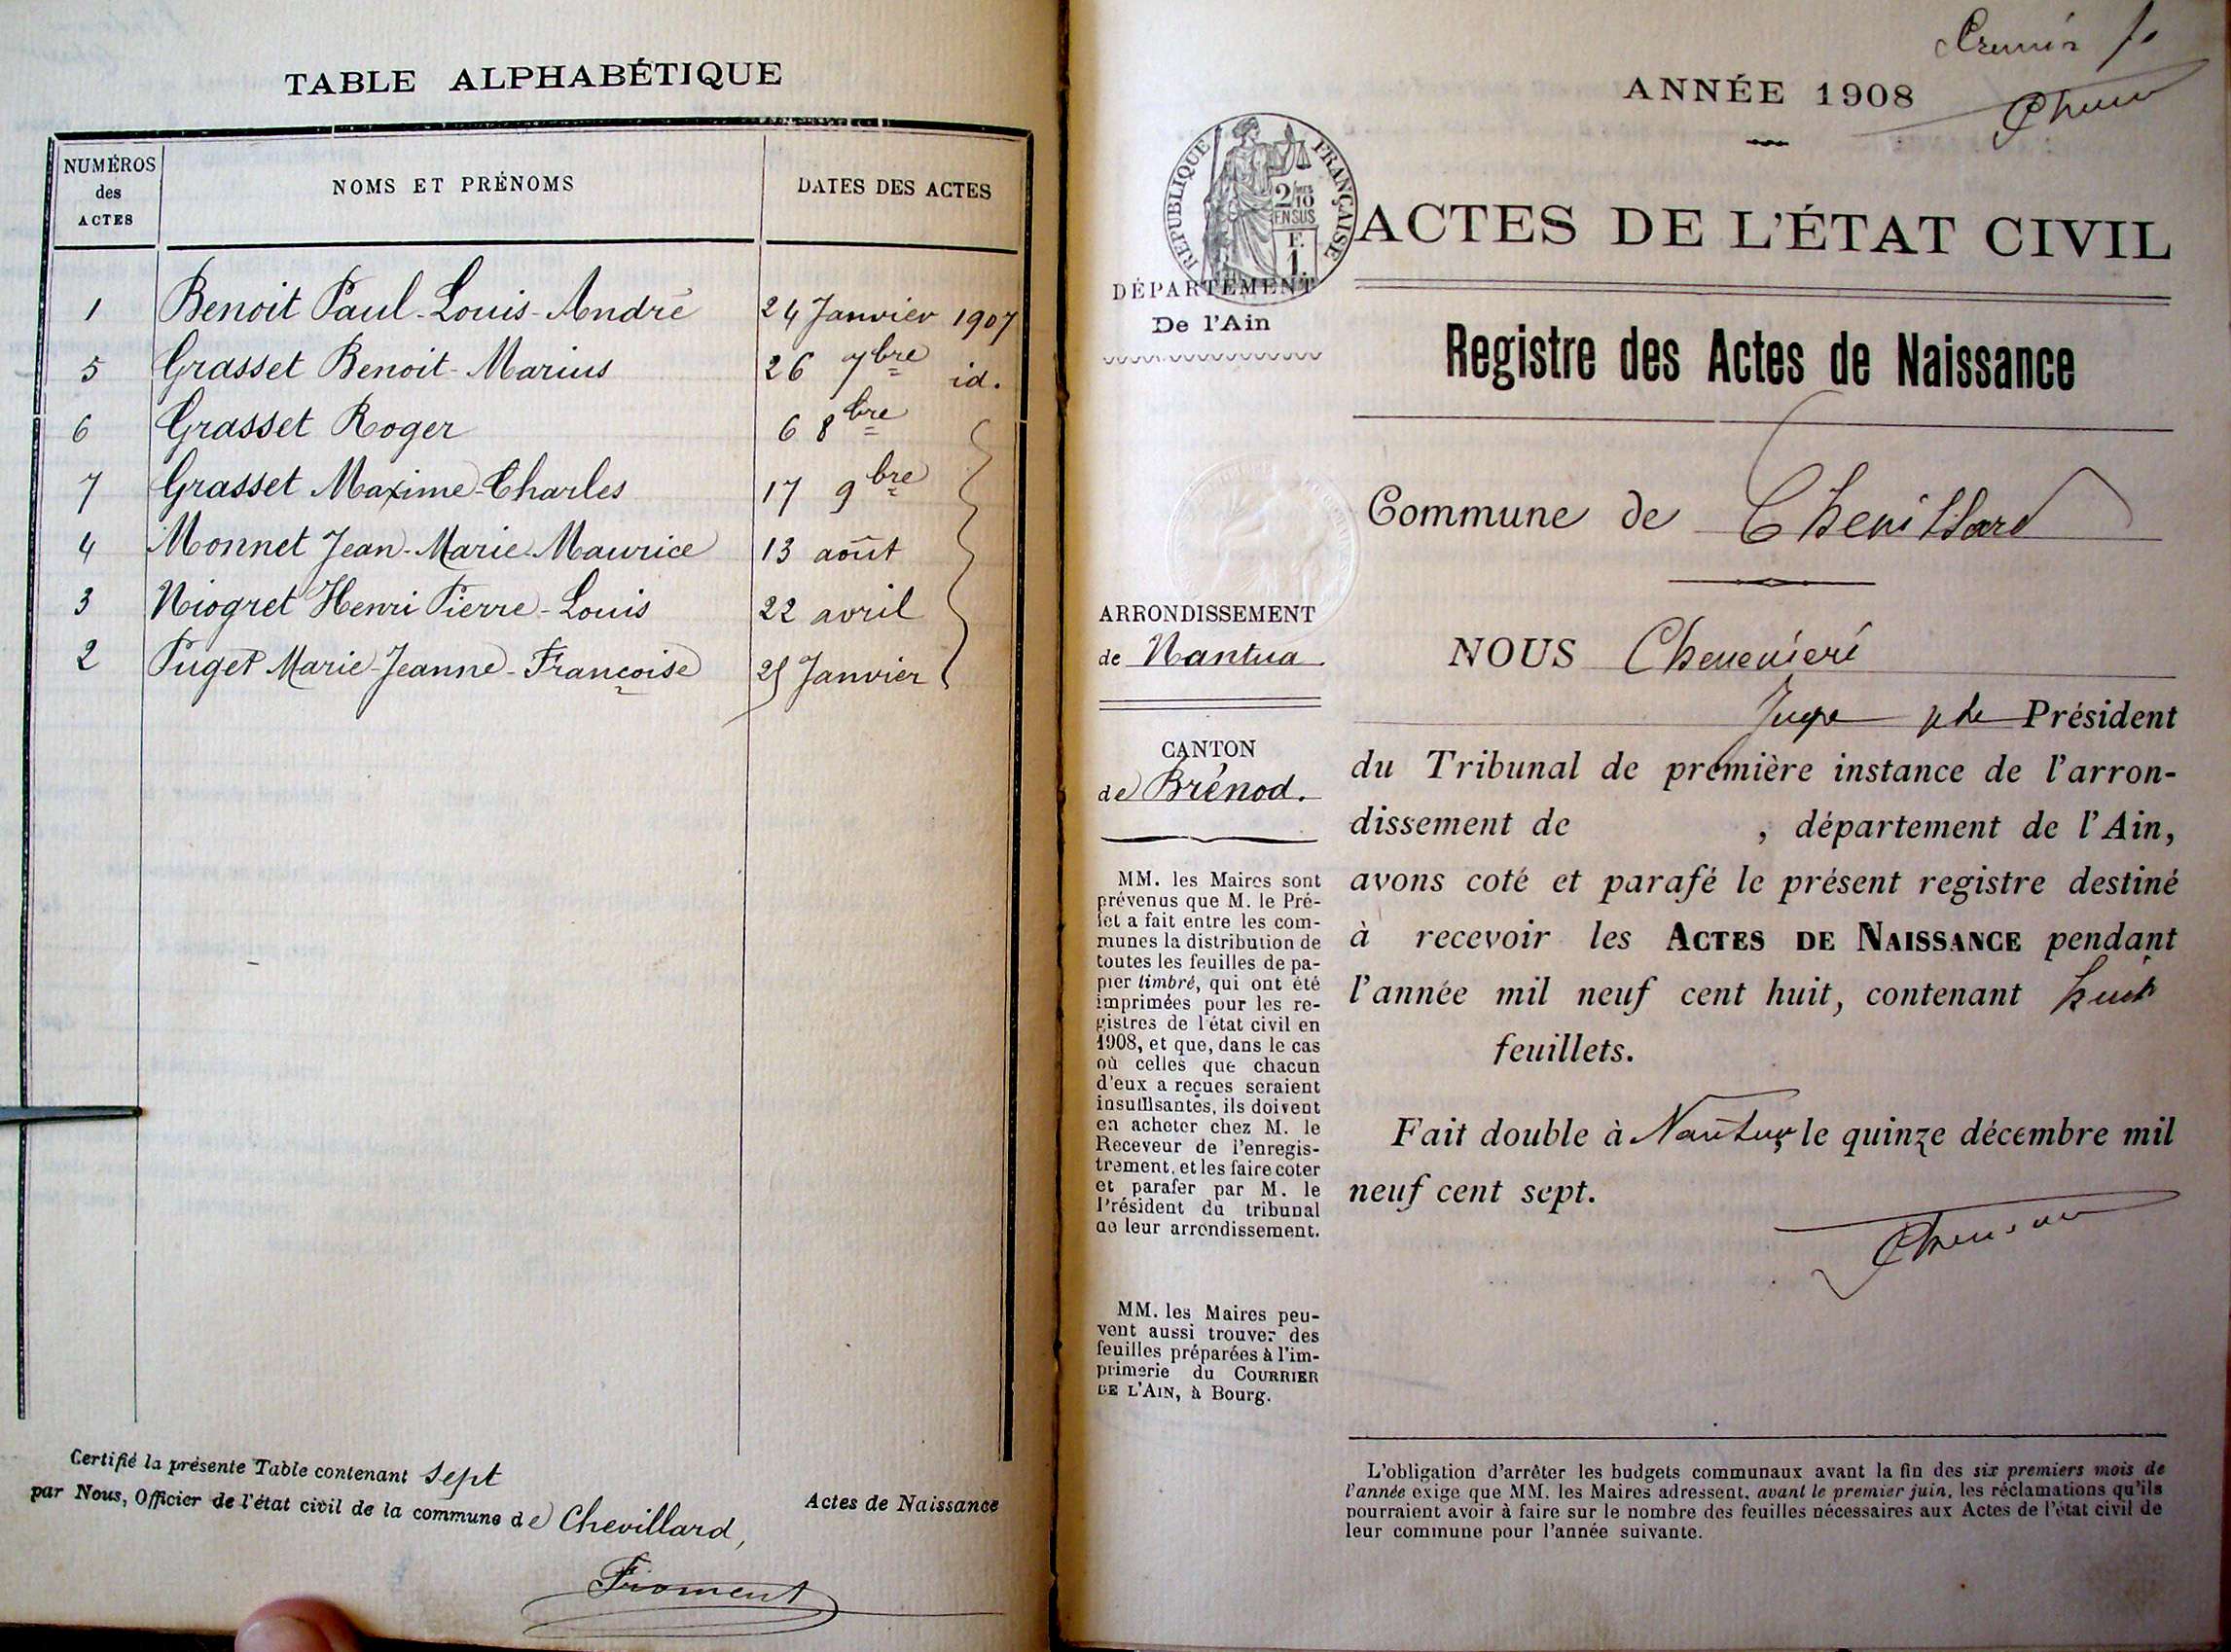 TABLE ALPHABÉTIQUE
NUMÉROS
des
ACTES
NOMS ET PRÉNOMS
DATES DES ACTES
1 Benoit Paul-Louis-André 24 Janvier 1907
5 Grasset Benoit-Marius 26 7bre id.
6 Grasset Roger 6 8bre
7 Grasset Maxime-Charles 17 9bre
4 Monnet Jean-Marie-Maurice 13 août
3 Niogret Henri Pierre-Louis 22 avril
2 Puget Marie-Jeanne-Françoise 25 Janvier
Certifié la présente Table contenant sept
Actes de Naissance
par Nous, Officier de l'état civil de la commune de Chevillard,
Froment
ANNÉE 1908
RÉPUBLIQUE FRANÇAISE
2/10
EN SUS
F.
1.
ACTES DE L'ÉTAT CIVIL
DÉPARTEMENT
De l'Ain
Registre des Actes de Naissance
Commune de Chevillard
ARRONDISSEMENT
de Nantua.
CANTON
de Brénod.
MM. les Maires sont
prévenus que M. le Pré-
fet a fait entre les com-
munes la distribution de
toutes les feuilles de pa-
pier timbré, qui ont été
imprimées pour les re-
gistres de l'état civil en
1908, et que, dans le cas
où celles que chacun
d'eux a reçues seraient
insuffisantes, ils doivent
en acheter chez M. le
Receveur de l'enregis-
trement, et les faire coter
et parafer par M. le
Président du tribunal
de leur arrondissement.
MM. les Maires peu-
vent aussi trouver des
feuilles préparées à l'im-
primerie du COURRIER
DE L'AIN, à Bourg.
NOUS
Juge Président
du Tribunal de première instance de l'arron-
dissement de , département de l'Ain,
avons coté et parafé le présent registre destiné
à recevoir les ACTES DE NAISSANCE pendant
l'année mil neuf cent huit, contenant huit
feuillets.
Fait double à Nantua le quinze décembre mil
neuf cent sept.
L'obligation d'arrêter les budgets communaux avant la fin des six premiers mois de
l'année exige que MM. les Maires adressent, avant le premier juin, les réclamations qu'ils
pourraient avoir à faire sur le nombre des feuilles nécessaires aux Actes de l'état civil de
leur commune pour l'année suivante.